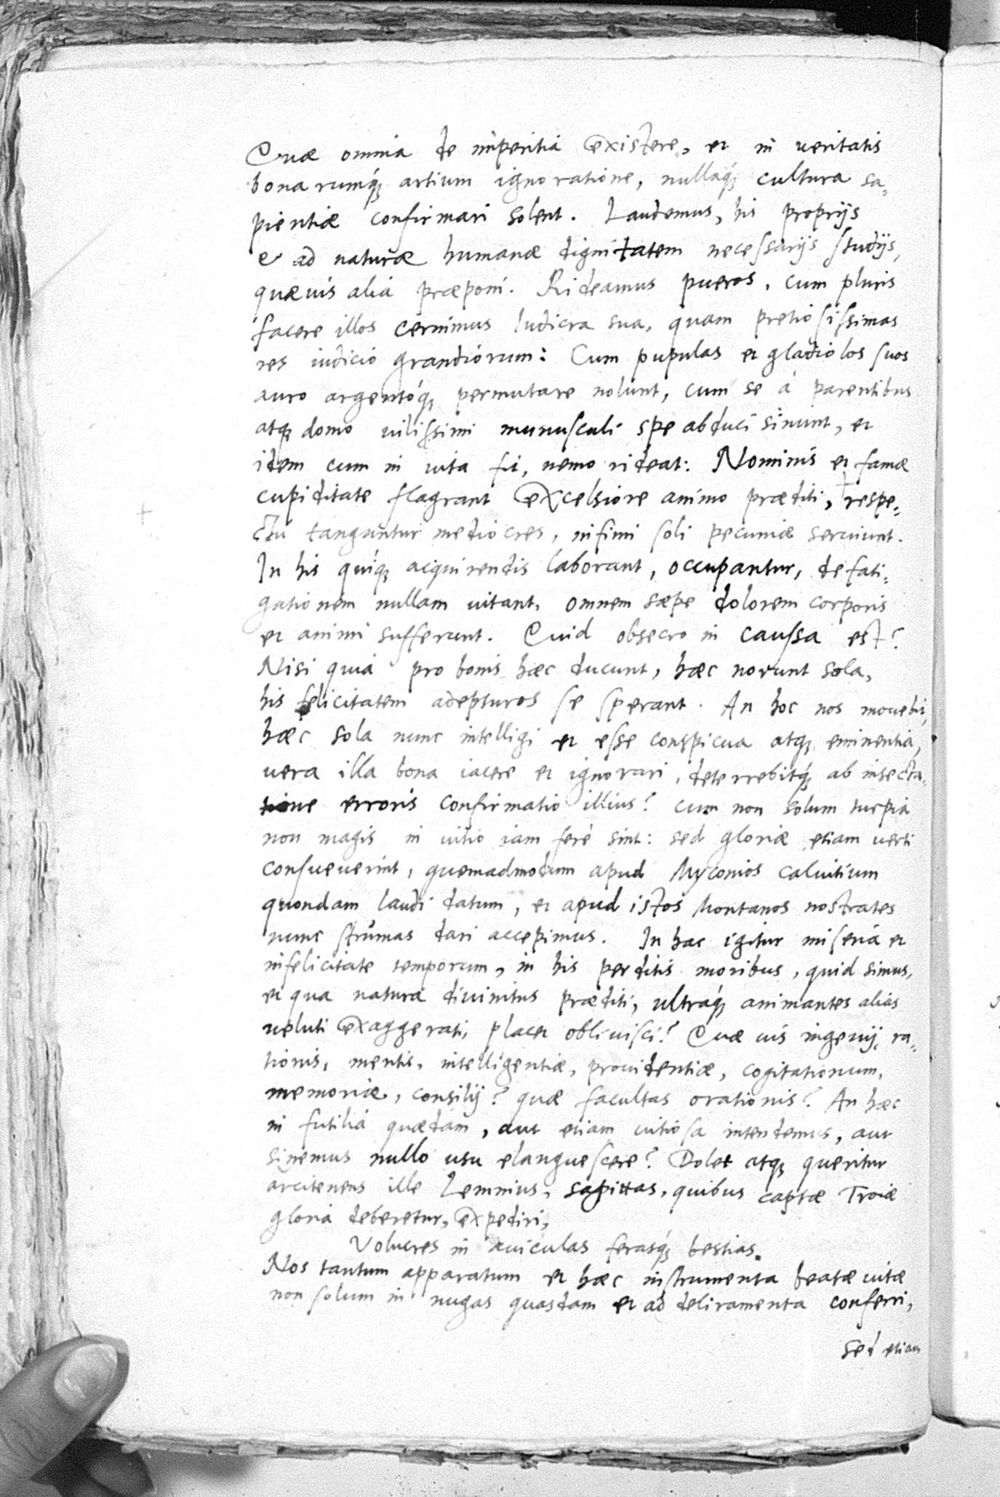 Quæ omnia de imperitia existere, et in veritatis
bonarumq́; artium ignoratione, nullaq́; cultura sa-
pientiæ confirmari solent. Laudemus, his proprijs
& ad naturæ humanæ dignitatem necessarijs studijs,
quævis alia præponi. Rideamus pueros, cum pluris
facere illos cernimus ludicra sua, quam pretiosissimas
res iudicio grandiorum: Cum pupulas et gladiolos suos
auro argentoq́; permutare nolunt, cum se à parentibus
atq; domo vilissimi munusculi spe abduci sinunt, et
idem cum in vita fit, nemo rideat: Nominis et famæ
cupiditate flagrant excelsiore animo præditi, respe-
ctu tanguntur mediocres, infimi soli pecuniæ serviunt.
In his quiq; acquirendis laborant, occupantur, defati-
gationem nullam vitant, omnem sæpe dolorem corporis
et animi sufferunt. Quid obsecro in caussa est?
Nisi quia pro bonis hæc ducunt, hæc norunt sola,
his felicitatem adepturos se sperant. An hoc nos movebit,
hæc sola nunc intelligi et esse conspicua atq; eminentia,
vera illa bona iacere et ignorari, deterrebitq́; ab insecta-
tione erroris confirmatio illius? cum non solum turpia
non magis in vitio iam ferè sint: sed gloriæ etiam verti
consueverint, quemadmodum apud Myconios calvitium
quondam laudi datum, et apud istos Montanos nostrates
nunc strumas dari accepimus. In hac igitur miseria et
infelicitate temporum, in his perditis moribus, quid simus,
et qua natura divinitus præditi, ultraq́; animantes alias
veluti exaggerati, placet oblivisci? Quæ vis ingenij, ra-
tionis, mentis, intelligentiæ, providentiæ, cogitationum,
memoriæ, consilij? quæ facultas orationis? An hæc
in futilia quædam, aut etiam vitiosa intendemus, aut
sinemus nullo usu elanguescere? Dolet atq; queritur
arcitenens ille Lemnius, sagittas, quibus captæ Troiæ
gloria deberetur, expediri,
Volucres in aviculas ferasq́; bestias.
Nos tantum apparatum et hæc instrumenta beatæ vitæ
non solum in nugas quasdam et ad deliramenta conferri,
sed etiam